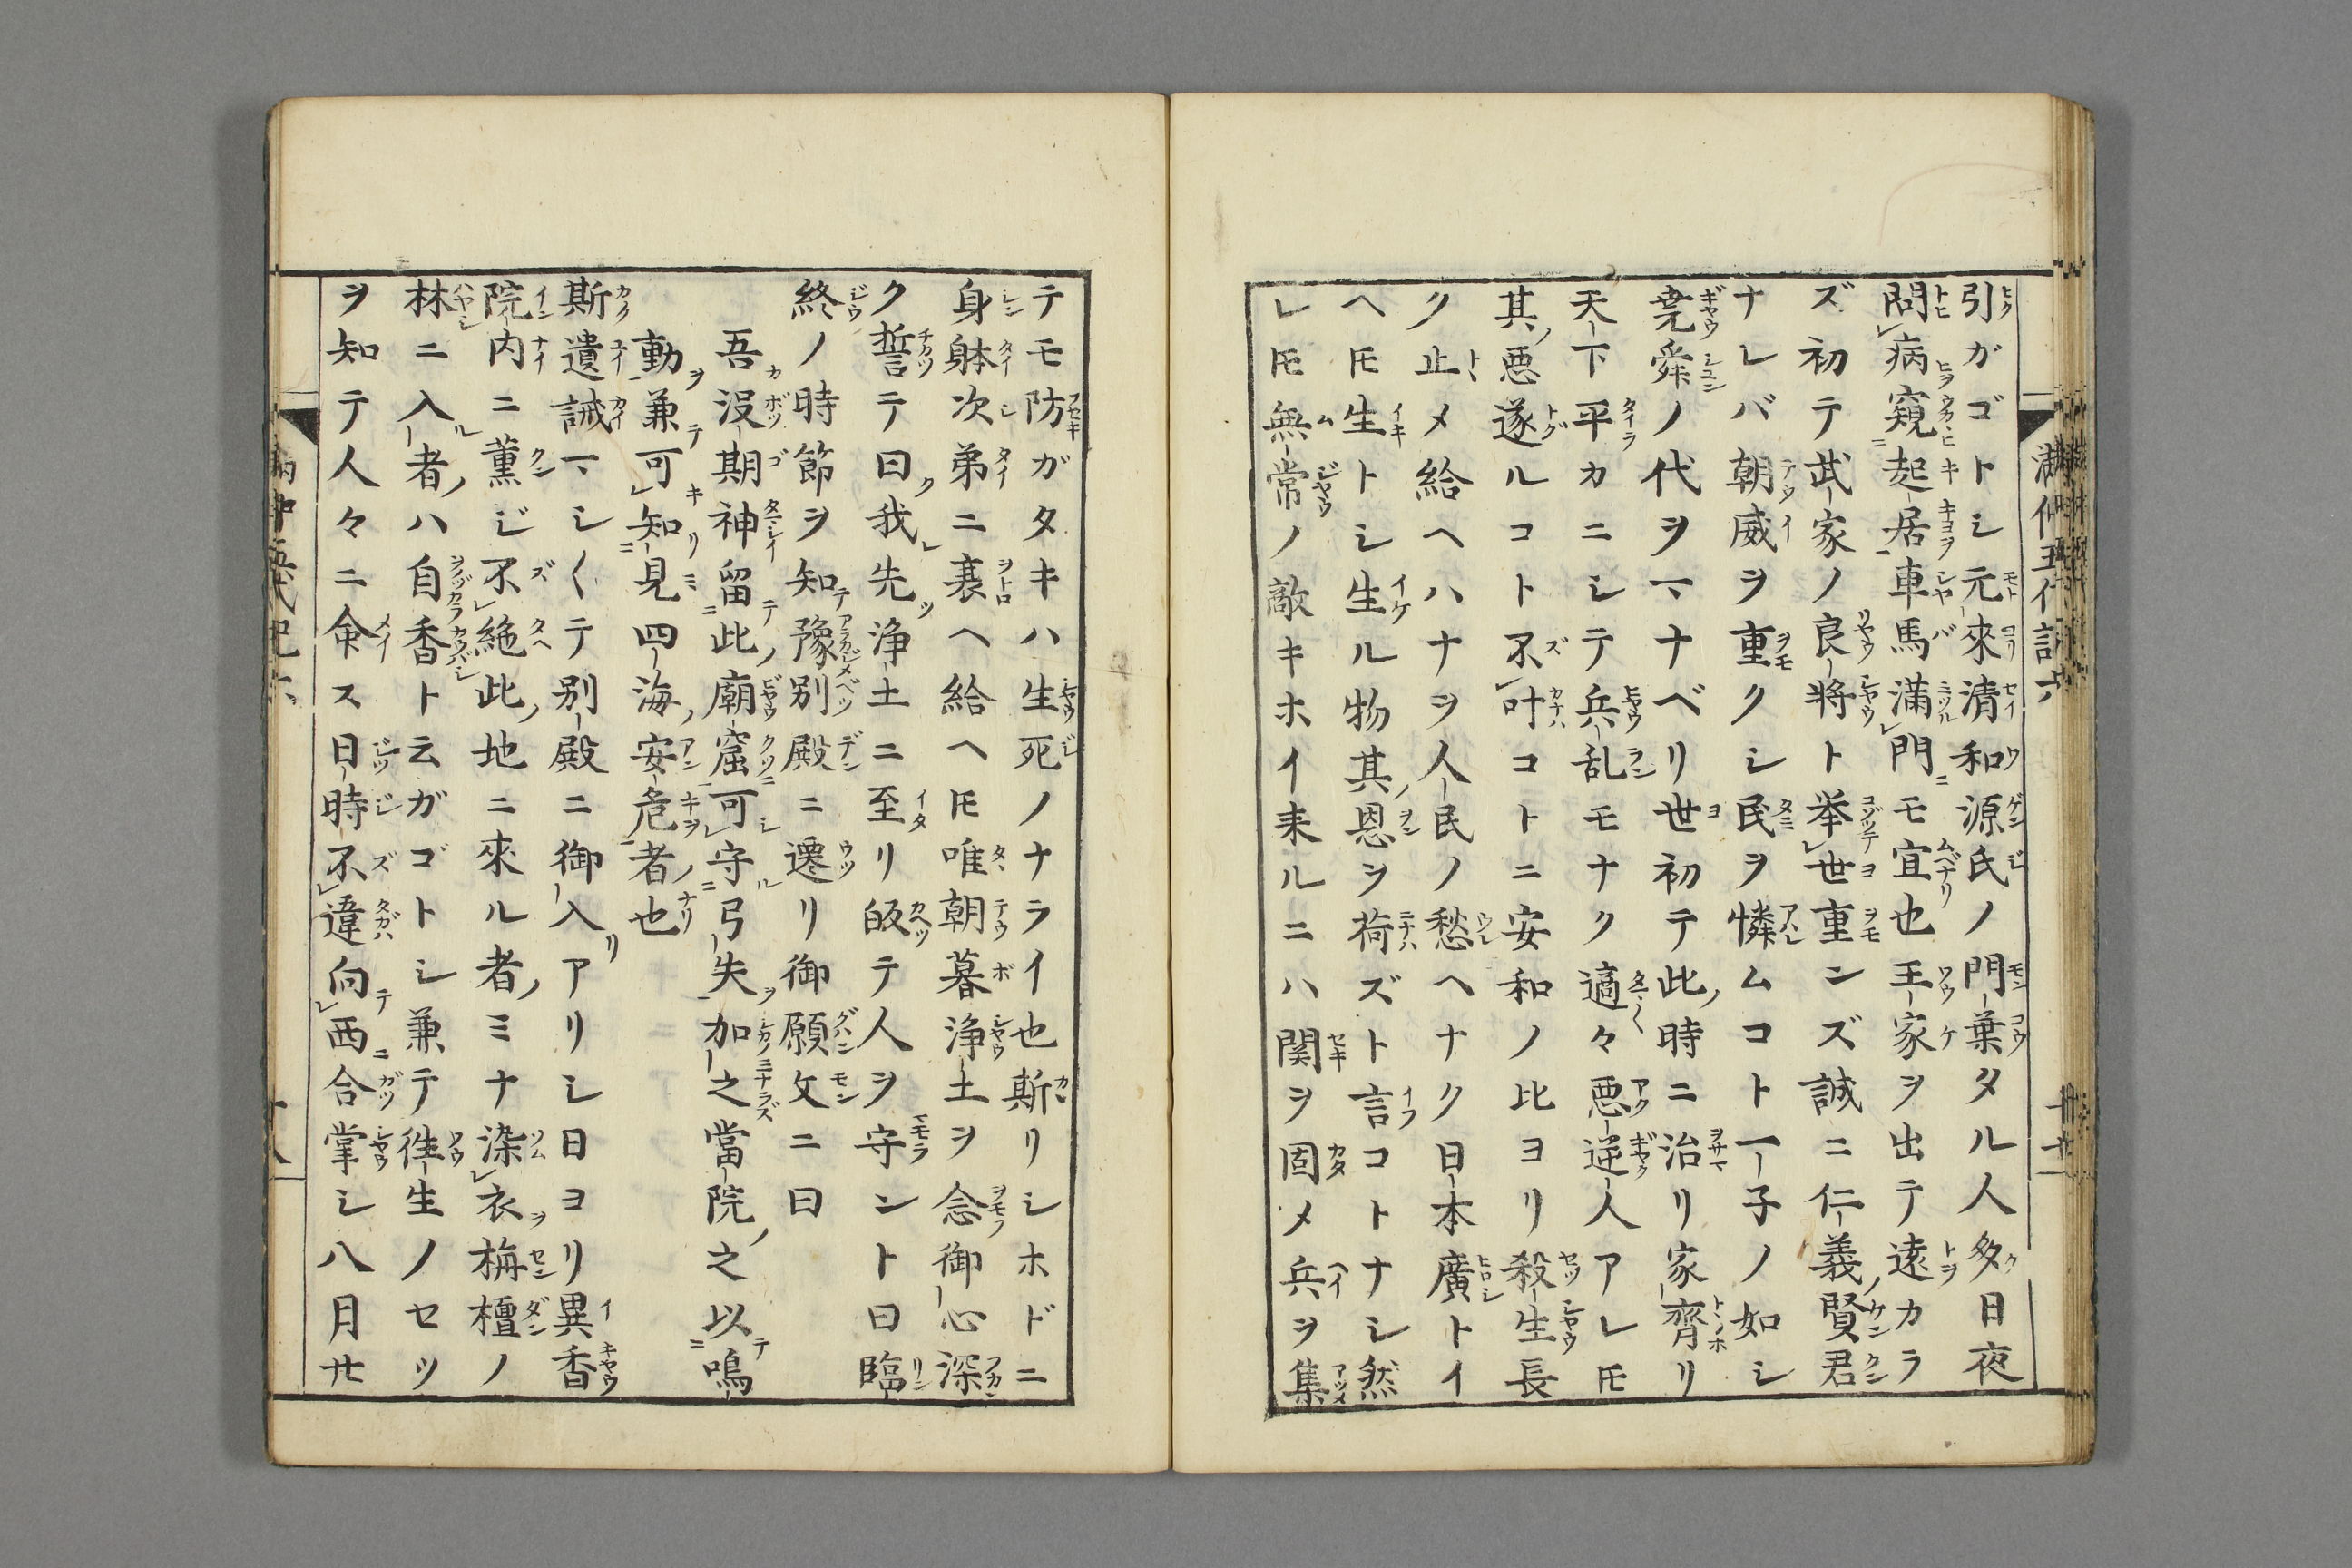 引ガゴトシ元來清和源氏ノ門葉タル人多日夜
問病窺起居車馬滿門モ宜也王家ヲ出テ遠カラ
ズ初テ武家ノ良將ト挙世重ンズ誠ニ仁義賢君
ナレバ朝威ヲ重クシ民ヲ憐ムコト一子ノ如シ
尭舜ノ代ヲマナベリ世初テ此時ニ治リ家齊リ
天下平カニシテ兵乱モナク適々悪逆人アレ𪜈
其悪遂ルコト不叶コトニ安和ノ比ヨリ殺生長
ク止メ給ヘハナヲ人民ノ愁ヘナク日本廣トイ
ヘ𪜈生トシ生ル物其恩ヲ荷ズト言コトナシ然
レ𪜈無常ノ敵キホイ来ルニハ関ヲ固メ兵ヲ集
テモ防ガタキハ生死ノナライ也斯リシホドニ
身躰次第ニ衰ヘ給ヘ𪜈唯朝暮浄土ヲ念御心深
ク誓テ曰我先浄土ニ至リ皈テ人ヲ守ント曰臨
終ノ時節ヲ知豫別殿ニ遷リ御願文ニ曰
吾没期神留此廟窟可守弓矢加之當院之以鳴
動兼可知見四海安危者也
斯遺誡マシ〱テ別殿ニ御入アリシ日ヨリ異香
院内ニ薫ジ不絶此地ニ來ル者ミナ染衣栴檀ノ
林ニ入者ハ自香ト云ガゴトシ兼テ徃生ノセツ
ヲ知テ人々ニ命ス日時不違向西合掌シ八月廿